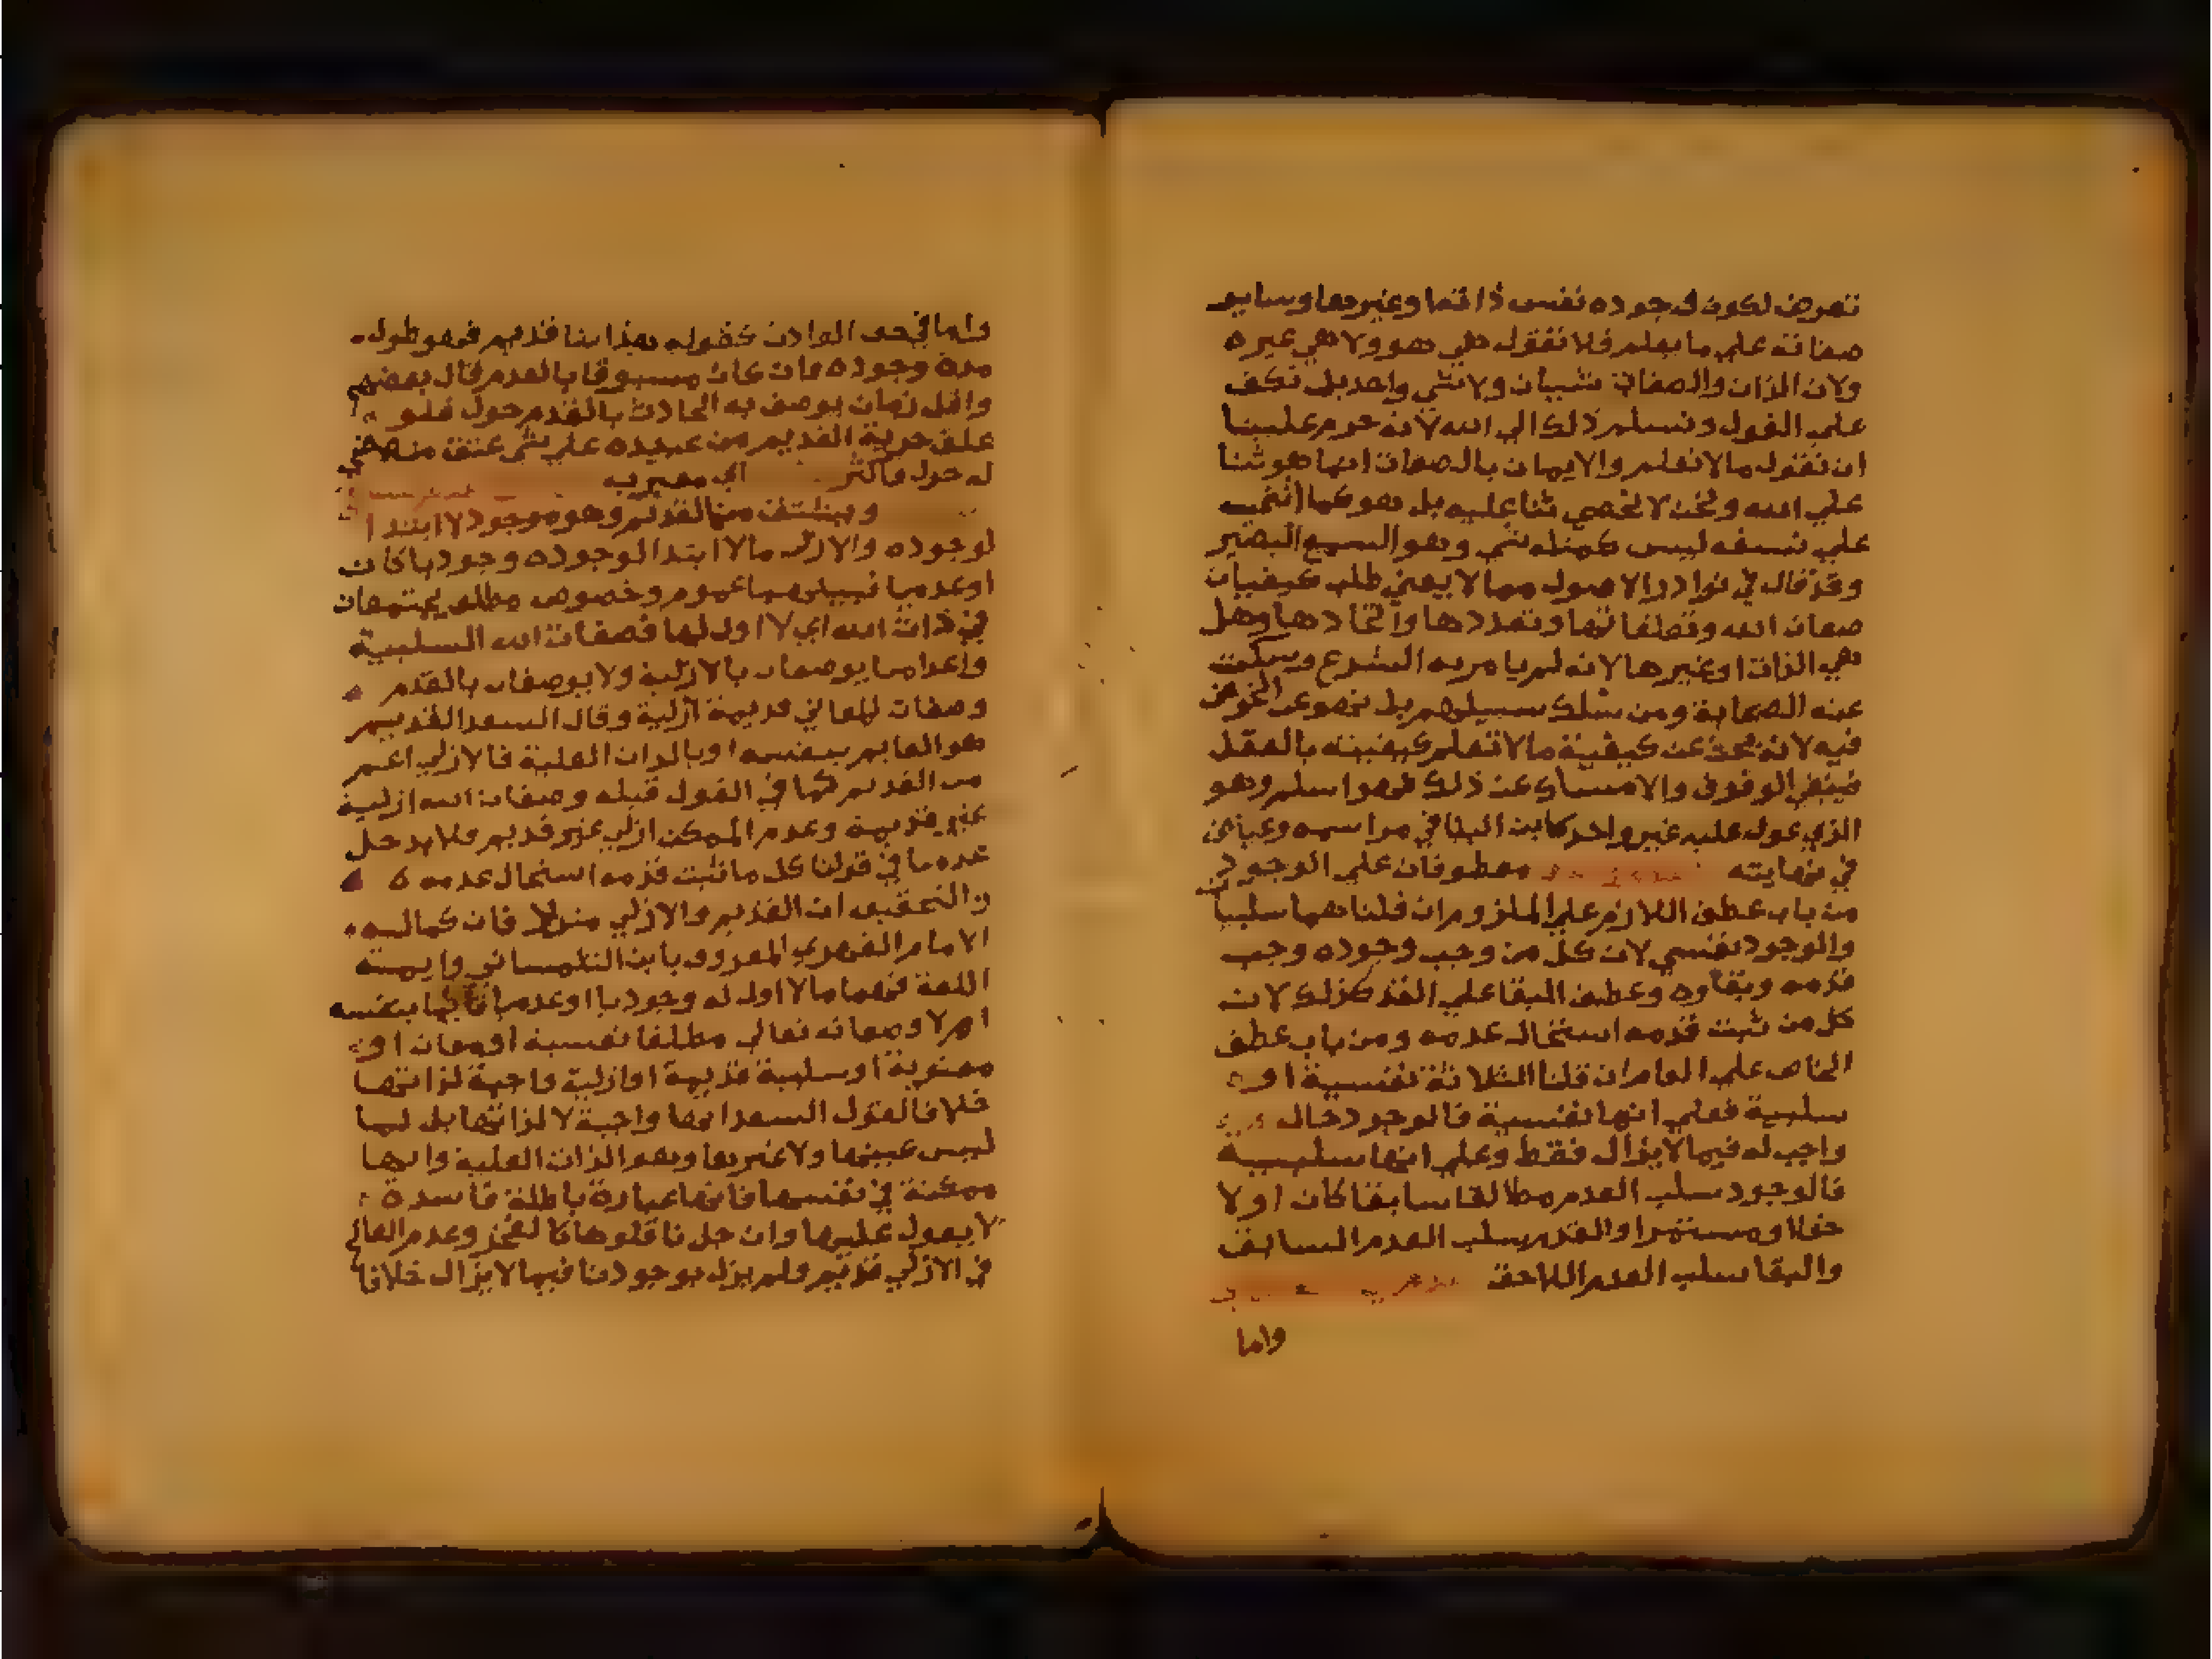 تعرض لكون وجوده نفس ذاتها وغيرها وساير
صفاته على ما يعلم فلا تقول هي هو ولا هي غيره
ولان الذات والصفات شيان ولا شي واحد بل تكف
على القول وتسلم ذلك الى الله لانه حرم علينا
ان نقول مالا نعلم والايمان بالصفات انها هو ثنا
على الله ونحن لا نحصي ثنا عليه بل هو كما اثنى
على نفسه ليس كمثله شي وهو السميع البصير
وقد قال في نوادر الاصول مما لا يعني طلب كيفيات
صفات الله وتعلقاتها وتعددها واتحادها وهل
هي الذات او غيرها لانه لم يامر به الشرع وسكت
عنه الصحابة ومن سلك سبيلهم بل نهو عن الخوض
فيه لانه بحث عن كيفية مالا تعلم كيفيته بالعقل
فينبغي الوقوف والامساك عن ذلك فهو اسلم وهو
الذي عول عليه غير واحد كابن البنا في مراسمه وعياض
في نهايته معطوفان على الوجود
من باب عطف اللازم على الملزوم ان قلنا هما سلبيان
والوجود نفسي لان كل من وجب وجوده وجب
قدمه وبقاوه وعطف البقا على القد كذلك لان
كل من ثبت قدمه استحال عدمه ومن باب عطف
الخاص على العام ان قلنا الثلاثة نفسية او
سلبية فعلى انها نفسية فالوجود حال
واجب له فيما لا يزال فقط وعلى انها سلبية
فالوجود سلب العدم مطلقا سابقا كان او لا
حقا او مستمرا والقدم سلب العدم السابق
والبقا سلب العدم اللاحق
واما
واما في حق الحوادث كقوله هذا بنا قديم فهو طول
مدة وجوده وان كان مسبوقا بالعدم قال بعضهم
واقل زمان يوصف به الحادث بالقدم حول فلو
علق حرية القديم من عبيده على شي عتق من مضى
له حول فاكثر اي معبر به
القديم وهو موجود لا ابتدا
لوجوده والازل مالا ابتدا لوجوده وجوديا كان
او عدميا فبينهما عموم وخصوص مطلق يجتمعان
في ذات الله اي لا اول لها فصفات الله السلبية
واعدامنا يوصفان بالازلية ولا يوصفان بالقدم
وصفات المعاني قديمة ازلية وقال السعد القديم
هو القايم بنفسه او بالذات العلية فالازلي اعم
من القديم كما في القول قبله وصفات الله ازلية
غير قديمة وعدم الممكن ازلي غير قديم فلا يدخل
عدمنا في قولنا كل ما ثبت قدمه استحال عدمه
والتحقيق ان القديم والازلي قال
الامام الفهري المعروف بابن التلمساني وايمة
اللغة فهما مالا اول له وجوديا او عدميا قايما بنفسه
ام لا وصفاته تعالى مطلقا نفسية او معان او
معنوية او سلبية قديمة او ازلية واجبة لذاتها
خلافا لقول السعد انها واجبة لا لذاتها بل لما
ليس عينها ولا غيرها وهو الذات العلية وانها
ممكنة في نفسها فانها عبارة باطلة فاسدة
لا يعول عليها وان جل ناقلوها كالفخر وعدم العالم
في الازلي قديم ولم يزل بوجودنا فيما لا يزال خلافا